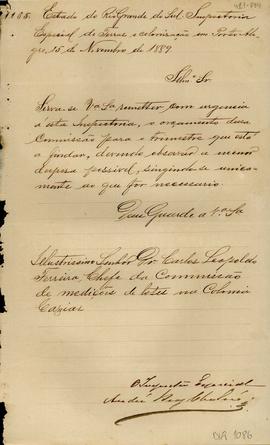 Estado do Rio Grande do Sul. Inspectoria
Especial de Terras e colonisação em Porto Ale-
gre, 15 de Novembro de 1889
Illmo Sr
Sirva-se Va Sa remetter com urgencia
a esta Inspectoria, o orçamento dessa
Commissão para o trimestre que está
a findar, devendo observar a menor
despesa possivel, cingindo-se unica-
mente ao que for necessario.
Deus Guarde a Va Sa
Illustrissimo Senhor Dr Carlos Leopoldo
Ferreira, Chefe da Commissão
de medições de lotes na Colonia
Caxias
O Inspector Especial
1086